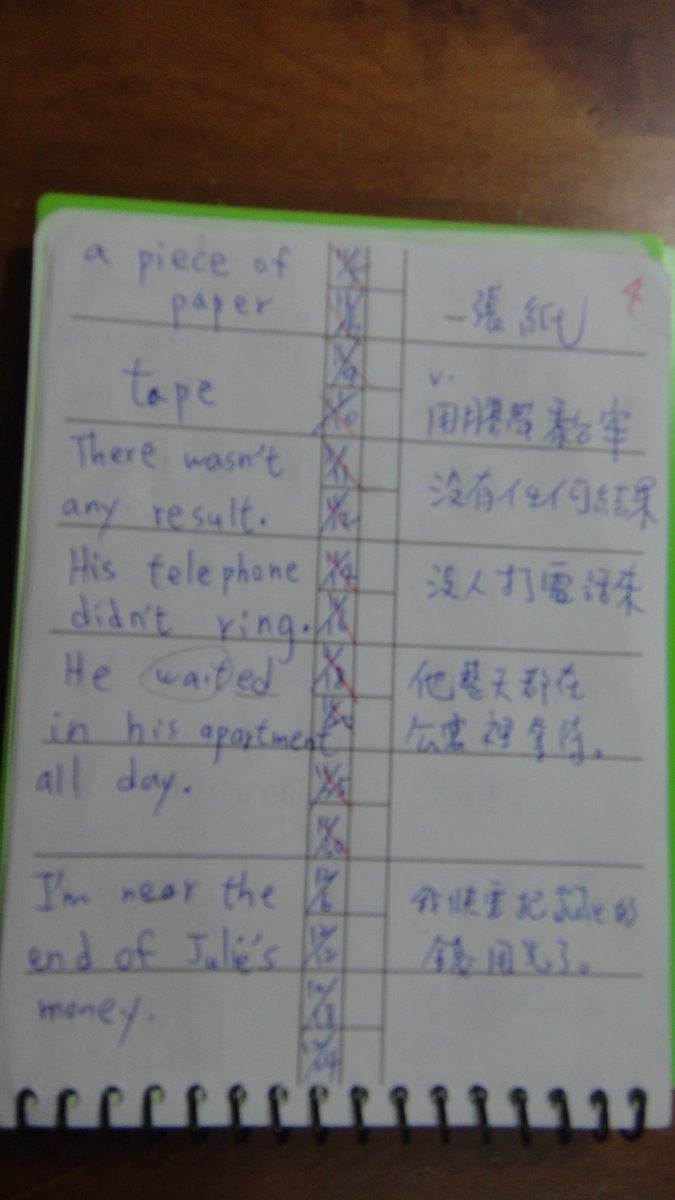 4
a piece of
paper
一張紙
tape
v.
用膠帶黏牢
There wasn't
any result.
沒有任何結果
His telephone
didn't ring.
沒人打電話來
He waited
in his apartment
all day.
他整天都在
公寓裡等待。
I'm near the
end of Julie's
money.
我快要把Julie的
錢用光了。
12/6
12/12
12/18
12/24